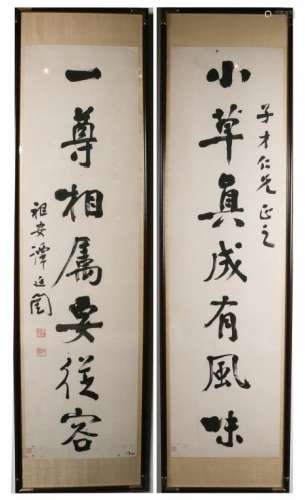 子才仁兄正之
小草眞成有風味
一尊相属要從容
祖安譚延闓